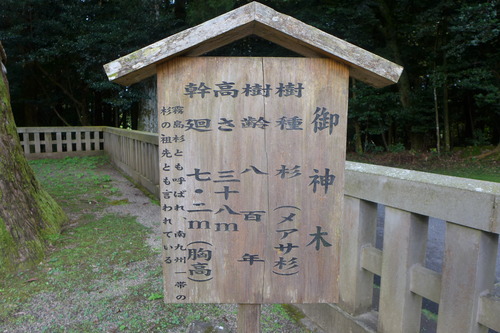 御神木
樹種 杉（メアサ杉）
樹齢 八百年
高さ 三十八m
幹廻 七・二m（胸高）
霧島杉とも呼ばれ、南九州一帯の
杉の祖先とも言われている